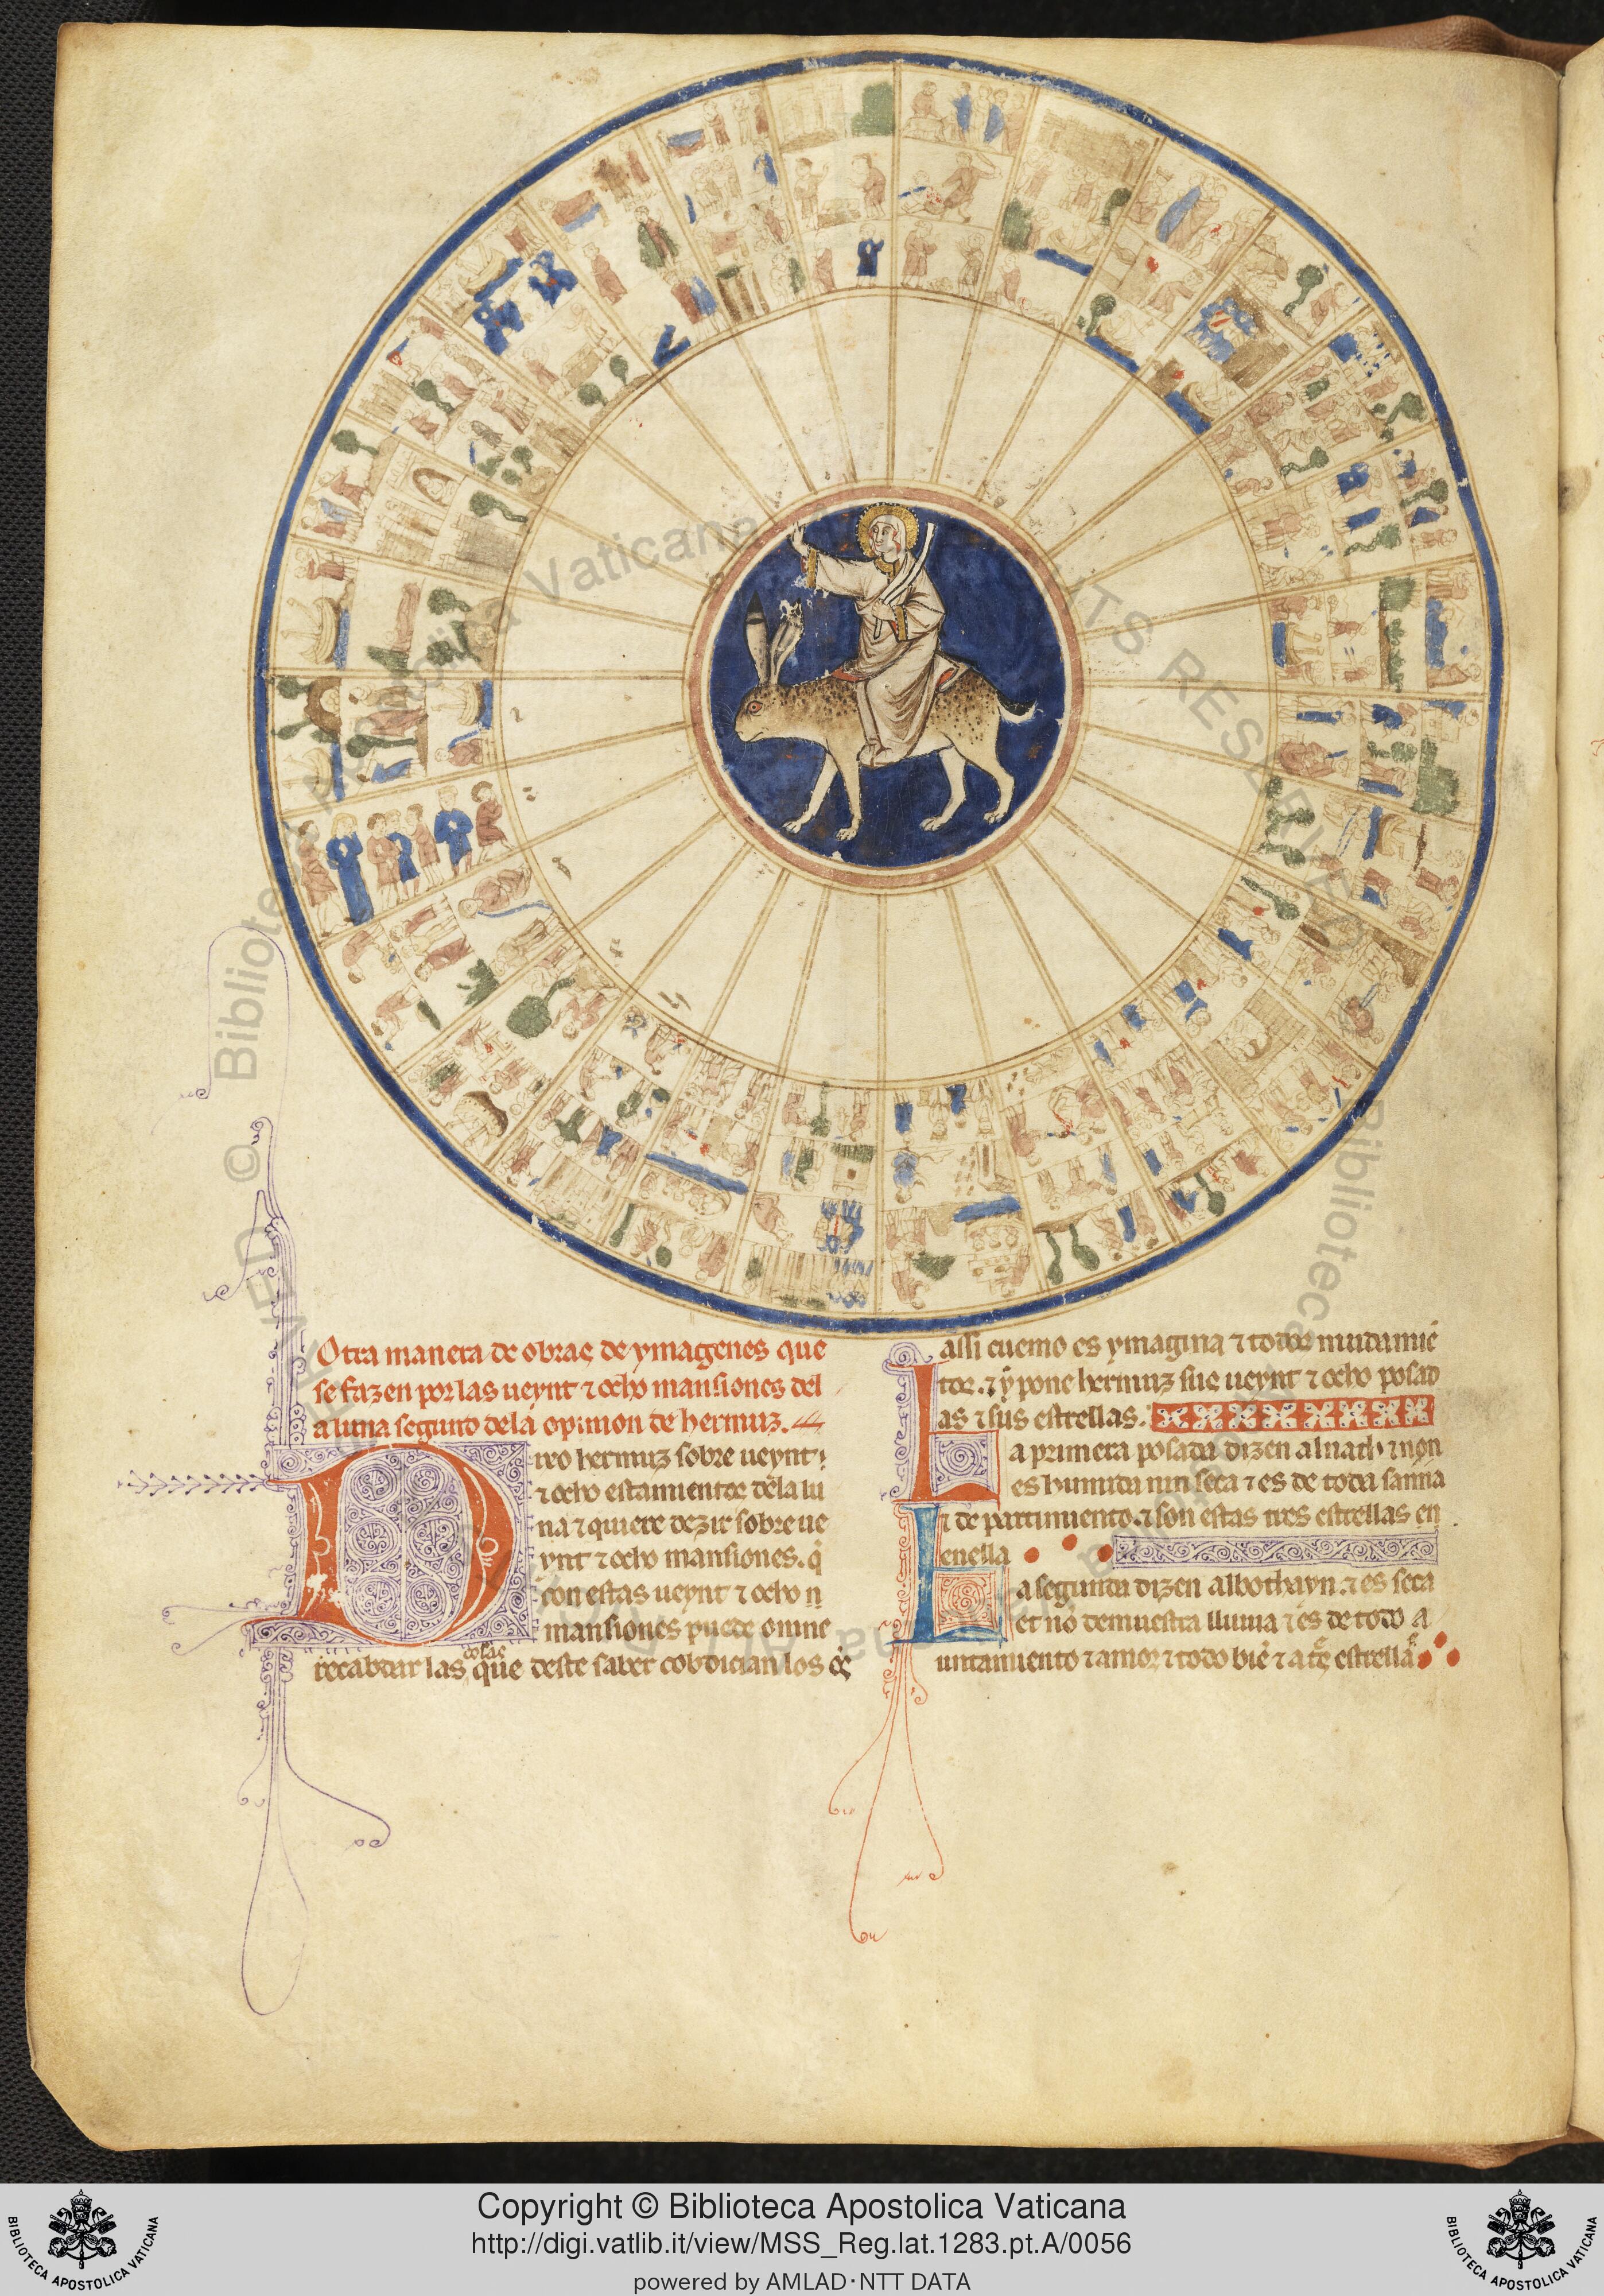 Otra manera de obras de ymagenes que
se fazen por las ueynt ⁊ ocho mansiones del
a luna segund dela opinion de hermuz.
Dixo hermuz sobre ueynt
⁊ ocho estamientos dela lu
na ⁊ quiere dezir sobre ue
ynt ⁊ ocho mansiones. q̇
con estas ueynt ⁊ ocho
mansiones puede omne
recabdar las cosas que deste saber cobdician los
assi cuemo es ymagina ⁊ todos mudamiē
tos. ⁊ ẏ pone hermuz sus ueynt ⁊ ocho posad
as ⁊ sus estrellas.
La primera posada dizen alnath ⁊ non
es humida nin seca ⁊ es de toda sanna
⁊ de partimiento. ⁊ son estas tres estrellas en
enella
La segunda dizen albothayn. ⁊ es seca
et nō demuestra lluuia ⁊ es de todo a
untamiento ⁊ amor ⁊ todo biē ⁊ a estrellas
© Biblioteca Apostolica Vaticana
ALL RIGHTS RESERVED
Copyright © Biblioteca Apostolica Vaticana
http://digi.vatlib.it/view/MSS_Reg.lat.1283.pt.A/0056
powered by AMLAD·NTT DATA
BIBLIOTECA APOSTOLICA VATICANA
BIBLIOTECA APOSTOLICA VATICANA